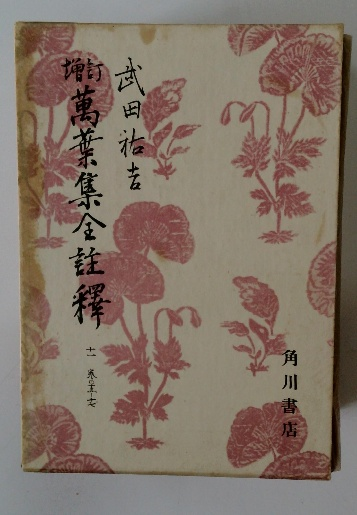 増訂
萬葉集全註釋
十一 巻の十五・十七
武田祐吉
角川書店